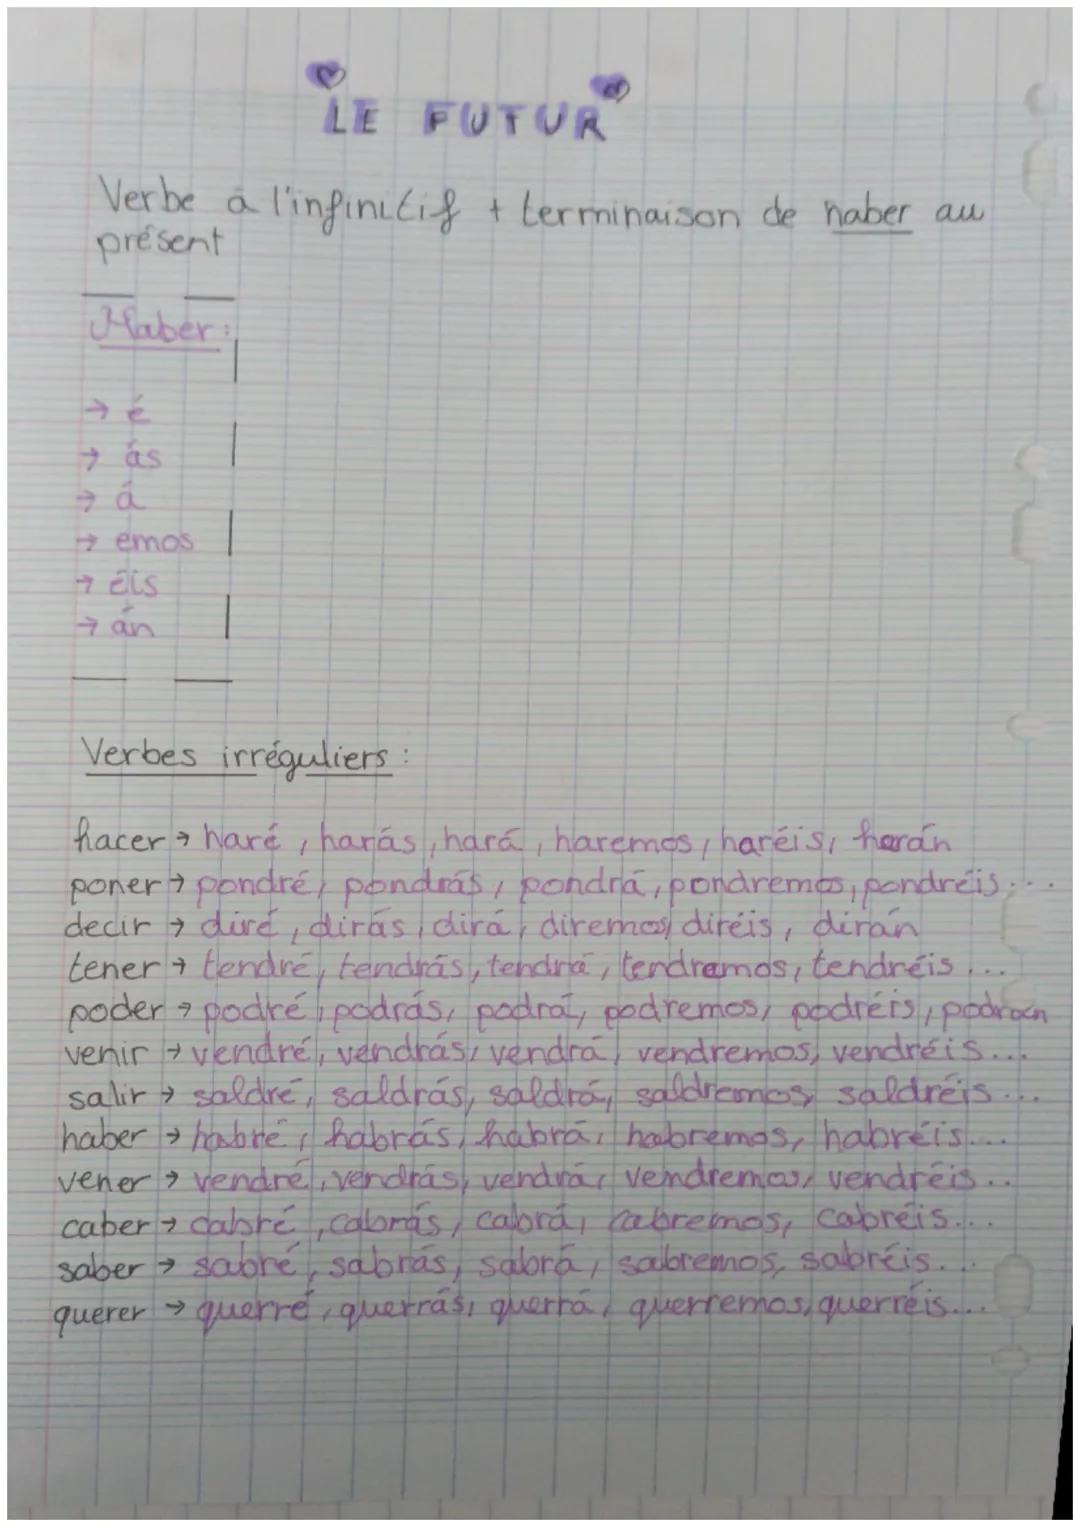 LE FUTUR
Verbe à l'infinitif + terminaison de haber au
présent
Haber:
→ é
→ ás
→ á
→ emos
→ éis
→ án
Verbes irréguliers :
hacer → haré, harás, hará, haremos, haréis, harán
poner → pondré, pondrás, pondrá, pondremos, pondréis...
decir → diré, dirás, dirá, diremos, diréis, dirán
tener → tendré, tendrás, tendrá, tendremos, tendréis...
poder → podré, podrás, podrá, podremos, podréis, podrán
venir → vendré, vendrás, vendrá, vendremos, vendréis...
salir → saldré, saldrás, saldrá, saldremos, saldréis...
haber → habré, habrás, habrá, habremos, habréis...
vener → vendré, vendrás, vendrá, vendremos, vendréis...
caber → cabré, cabrás, cabrá, cabremos, cabréis...
saber → sabré, sabrás, sabrá, sabremos, sabréis...
querer → querré, querrás, querrá, querremos, querréis...